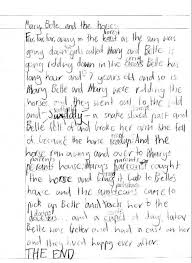 Mary Belle and the horses.
Far far far away in the heart of the sun was
going down girls called Mary and Belle is
going ridding down in the Belle has
long hair and 7 years old and so is
Mary Belle and Mary were ridding the
horse and they went out to the old
and Suddenly a snake slived past and
Belle fell of and broke her arm the fell
of because the horse And the
horse ran away and over to Mary's
parents house, Mary's parents cought
the horse and it back to Belle's
house and the came to
pick up Belle and her to the
doctors... and a cupel of day later
Belle were better and had a cast on her
and they lived happy ever after.
THE END